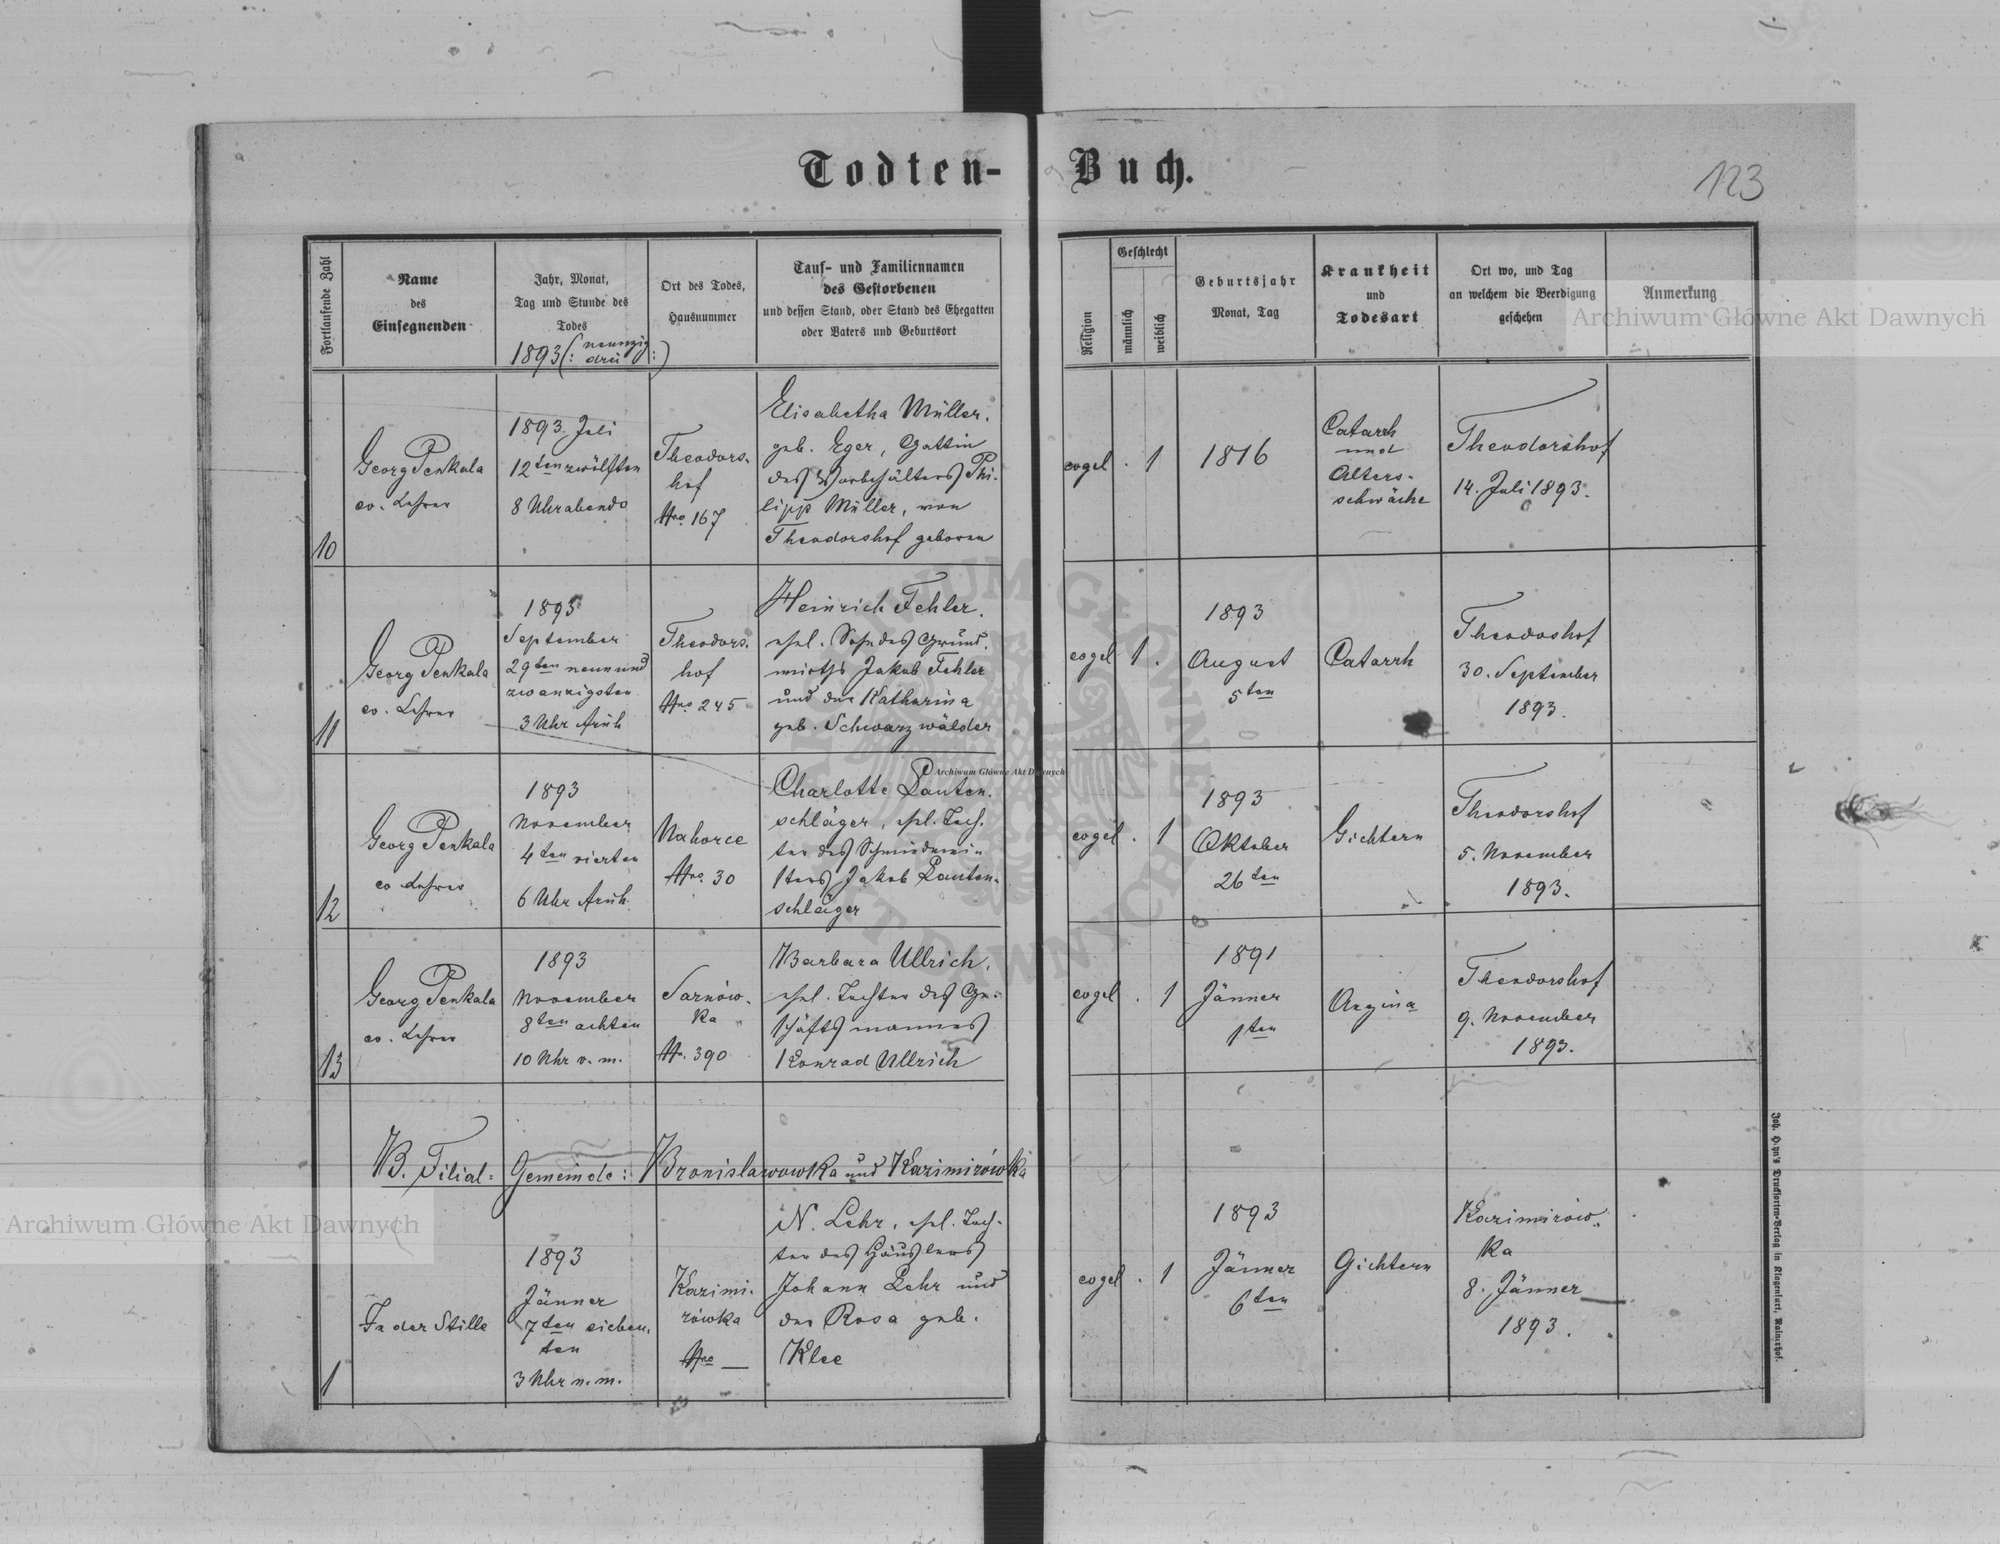 Todten-Buch.
123
Fortlaufende Zahl
Name
des
Einsegnenden
Jahr, Monat,
Tag und Stunde des
Todes
1893 (: neunzig
drei :)
Ort des Todes,
Hausnummer
Tauf- und Familiennamen
des Gestorbenen
und dessen Stand, oder Stand des Ehegatten
oder Vaters und Geburtsort
Religion
Geschlecht
männlich
weiblich
Geburtsjahr
Monat, Tag
Krankheit
und
Todesart
Ort wo, und Tag
an welchem die Beerdigung
geschehen
Anmerkung
10
Georg Penkala
ev. Lehrer
1893 Juli
12ten zwölften
8 Uhr abends
Theodors-
hof
Nro. 167
Elisabetha Müller,
geb. Eger, Gattin
des Vorbehälters Phi-
lipp Müller, von
Theodorshof geboren
evgel
. 1
1816
Catarrh
und
Alters-
schwäche
Theodorshof
14. Juli 1893.
11
Georg Penkala
ev. Lehrer
1893
September
29ten neunund
zwanzigsten
3 Uhr früh
Theodors-
hof
Nro 245
Heinrich Fehler,
ehel. Sohn des Grund-
wirths Jakob Fehler
und der Katharina
geb. Schwarzwälder
evgel
1 .
1893
August
5ten
Catarrh
Theodoshof
30. September
1893.
12
Georg Penkala
ev Lehrer
1893
November
4ten vierten
6 Uhr früh
Nahorce
Nro. 30
Charlotte Lauten-
schläger, ehel. Toch-
ter des Schmiedmei-
sters Jakob Lauten-
schläger
evgel
. 1
1893
Oktober
26ten
Gichtern
Theodorshof
5. November
1893.
13
Georg Penkala
ev. Lehrer
1893
November
8ten achten
10 Uhr v. m.
Sarnów-
ka
Nr. 390
Barbara Ullrich,
ehel. Tochter des Ge-
schäftsmannes
Konrad Ullrich
evgel
. 1
1891
Jänner
1ten
Angina
Theodorshof
9. November
1893.
B. Filial-Gemeinde: Bronislawowka und Kazimirówka
1
In der Stille
1893
Jänner
7ten sieben-
ten
3 Uhr n. m.
Kazimi-
rówka
Nro —
N. Lehr, ehel. Toch-
ter des Häuslers
Johann Lehr und
der Rosa geb.
Klee
evgel
. 1
1893
Jänner
6ten
Gichtern
Kazimirów-
ka
8. Jänner
1893.
Archiwum Główne Akt Dawnych
Archiwum Główne Akt Dawnych
Archiwum Główne Akt Dawnych